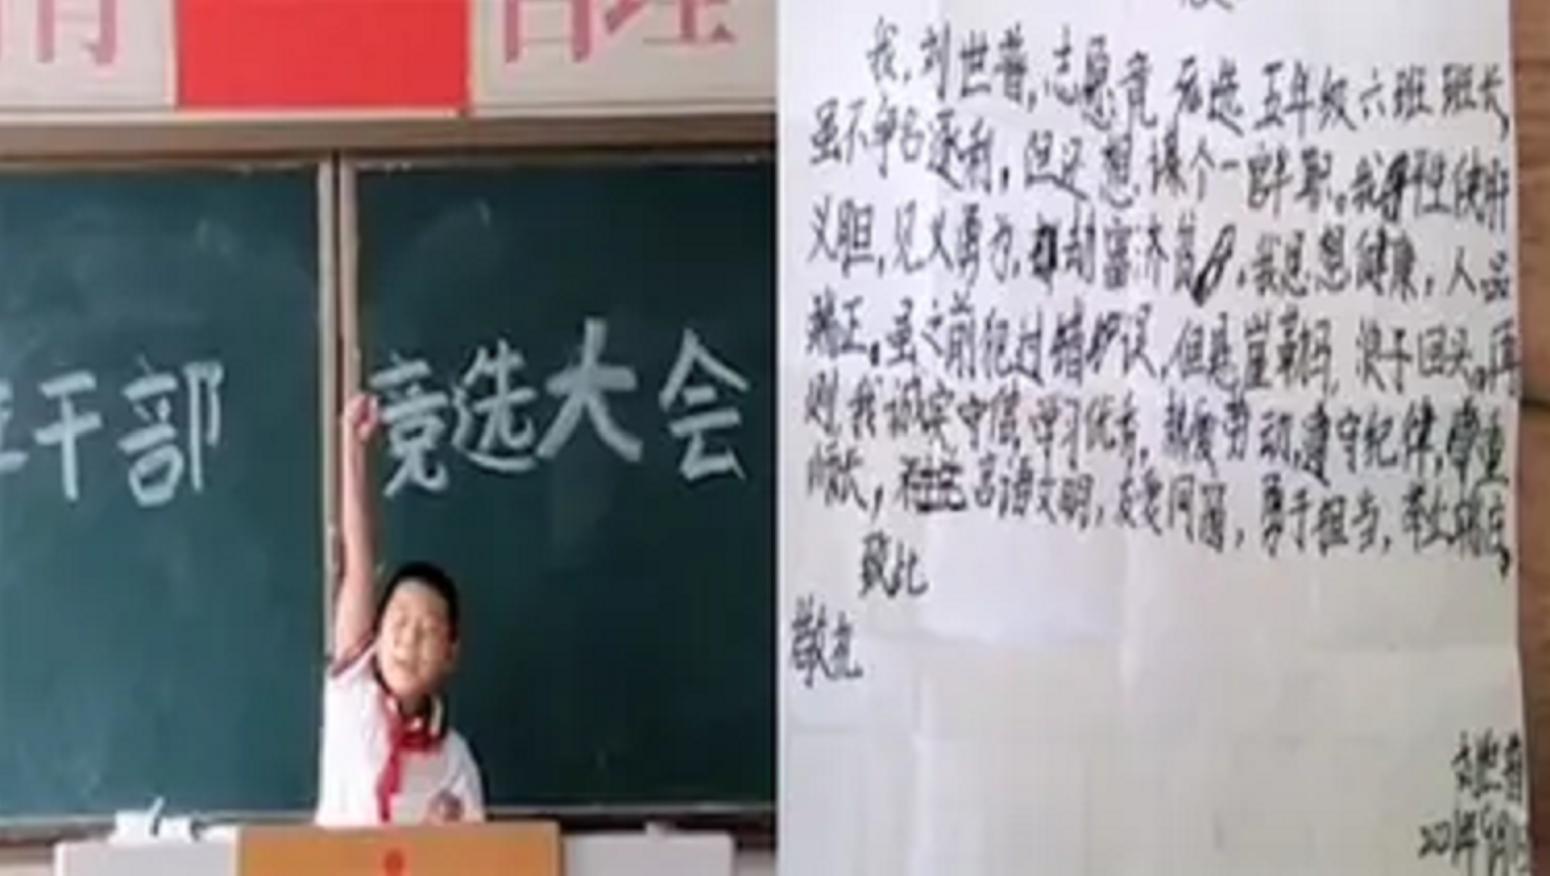 干部 竞选大会
我，刘世普，志愿竞选五年级六班班长，
虽不争名逐利，但还想谋个一官半职。我
义胆，见义勇为，劫富济贫，我思想健康，人品
端正。虽之前犯过错误，但悬崖勒马，浪子回头，再
则，我诚实守信，学习优秀，热爱劳动，遵守纪律，尊重
师长，言语文明，友爱同窗，勇于担当，
致此
敬礼
刘世普